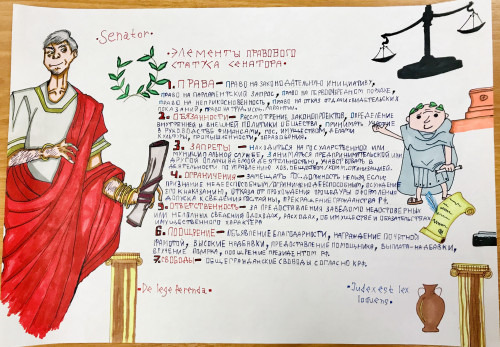 •Senator•
•Элементы правового
статуса сенатора.•
1. Права— право на законодательную инициативу,
право на парламентский запрос, право на первоочередной приём,
право на неприкосновенность, право на отказ от дачи свидетельских
показаний, право на трансп.
2. Обязанности— рассмотрение законопроектов, определение
внутренней и внешней политики общества, принимать участие
в руководстве финансами, гос. имуществом, делами
культуры, промышленности, образования.
3. Запреты— находиться на государственной или
муниципальной службе, заниматься предпринимательской или
другой оплачиваемой деятельностью, участвовать в
деятельности по управлению хоз. обществом/ком.организацией.
4. Ограничения— замещать гос. должность нельзя, если:
признание недееспособным/ограниченно дееспособным, осуждение
к наказанию, отказ от прохождения процедуры оформления
допуска к сведениям гостайны, прекращение гражданства РФ.
5. Ответственность— за предоставления заведомо недостоверных
или неполных сведений о доходах, расходах, об имуществе и обязательствах
имущественного характера
6. Поощрение— объявление благодарности, награждение почётной
грамотой, высокие надбавки, предоставление помощника, выплата надбавки,
вручение подарка, поощрение президентом РФ.
7. Свободы— общегражданские свободы согласно КРФ.
•De lege ferenda.•
•Judex est lex
loquens•